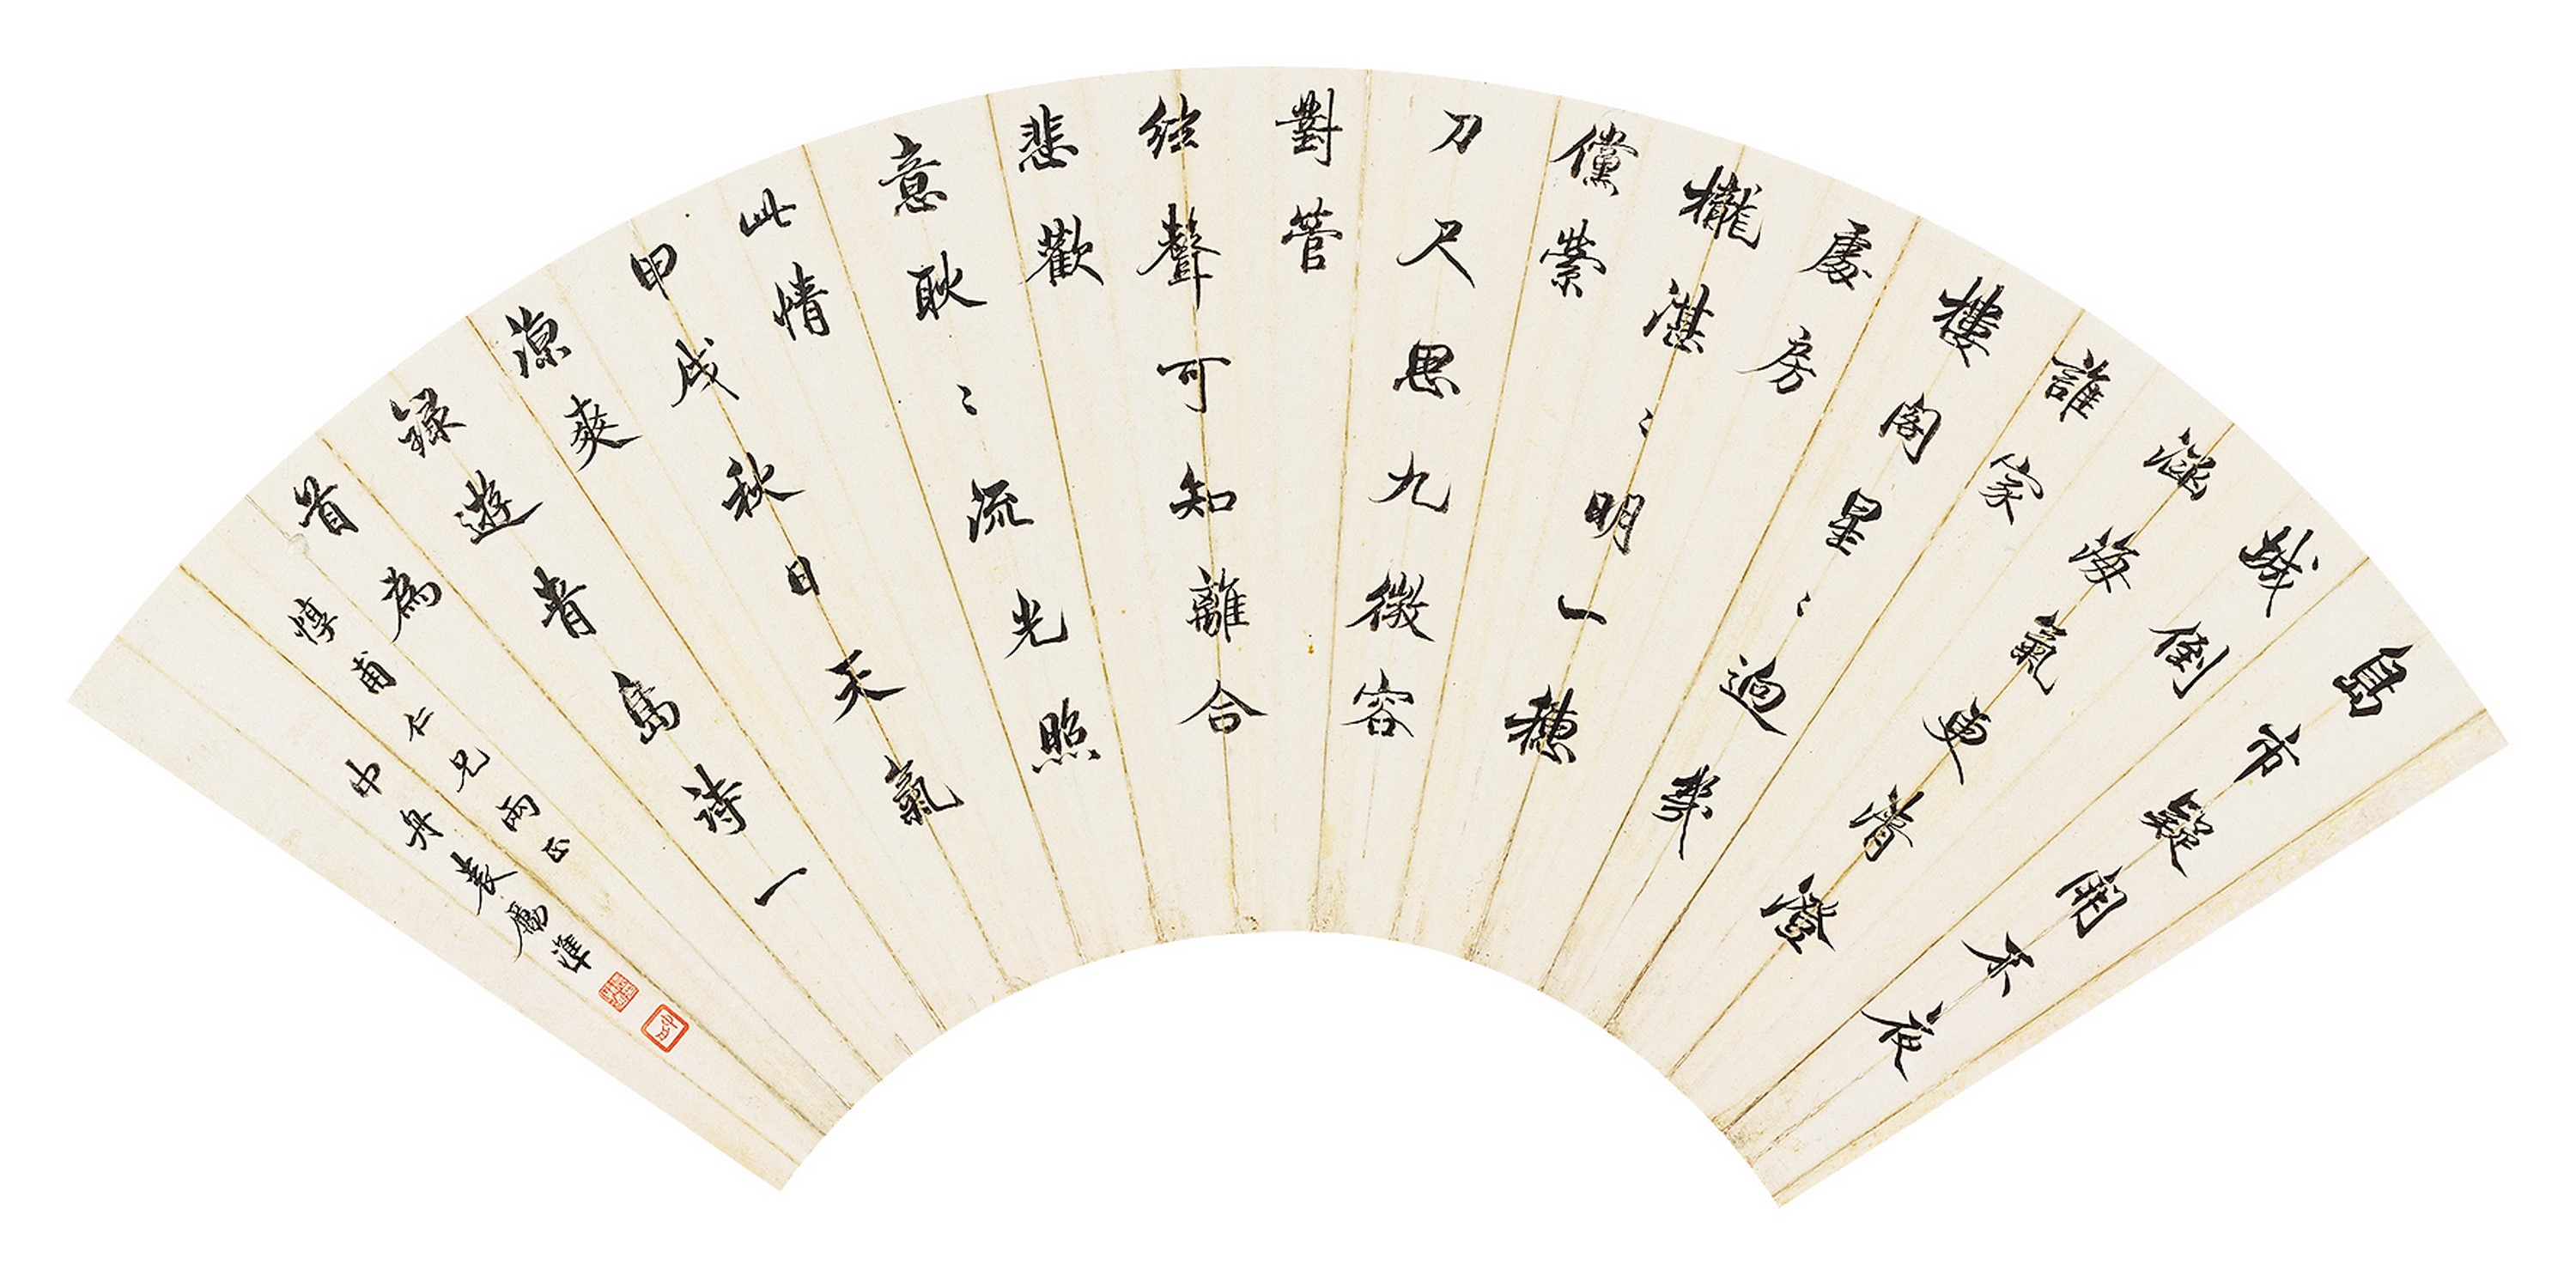 島市疑開不夜
城倒
涵海氣更清澄
誰家
樓閣星〻迥幾
處房
櫳湛〻明一穗
儻縈
刀尺思九微容
對管
絃聲可知離合
悲歡
意耿〻流光照
此情
甲戌秋日天氣
涼爽
錄遊青島詩一
首為
惇甫仁兄兩正
中舟袁勵準